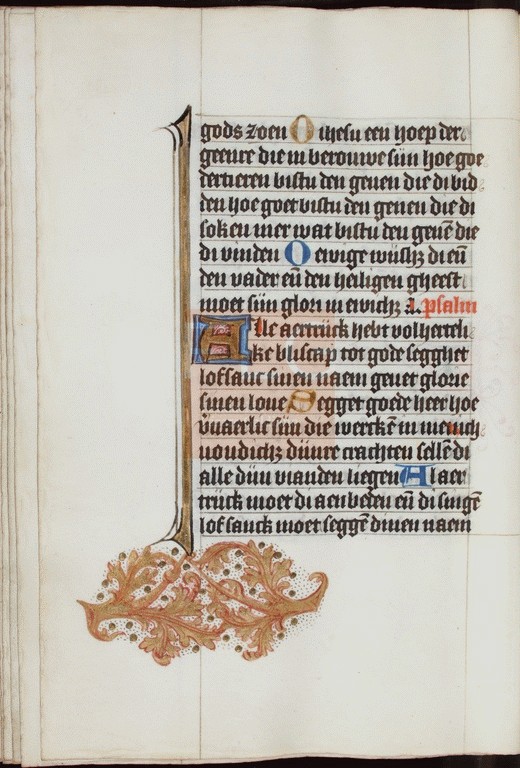 gods zoen O ihesu een hoep der
geenre die in berouwe siin hoe goe
dertieren bistu den genen die di bid
den hoe goet bistu den genen die di
soken mer wat bistu den genē die
di vinden O ewige wiish3 di eñ
den vader eñ den heiligen gheest
moet siin glori in ewich3 a. psalm
Alle aertriick hebt volherteli
ke bliscap tot gode segghet
lofsanc sinen naem gevet glorie
sinen love Segget goede heer hoe
vvaerlic siin die werckē in menich
voudich3 diinre crachten sellē di
alle diin vianden liegen Al aer
triick moet di aenbeden eñ di singē
lof sanck moet seggē dinen naem